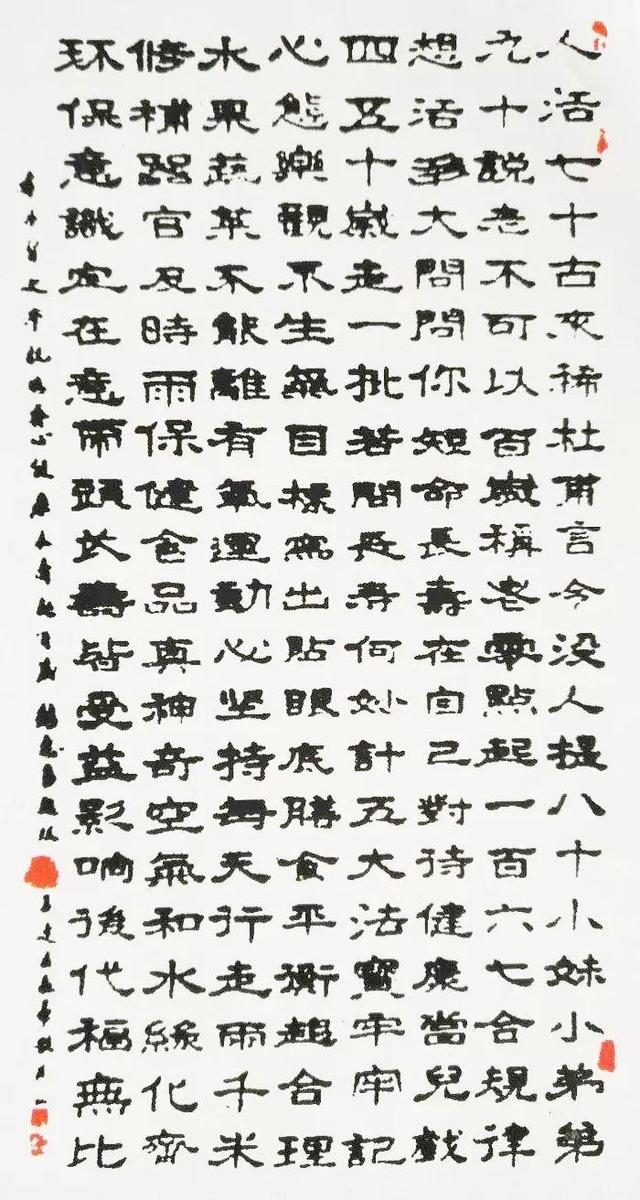 人活七十古來稀杜甫言今没人提八十小妹小弟弟
九十説老不可以百歲稱老零點起一百六七合規律
想活多大問問你短命長壽在自己對待健康當兒戲
四五十歲走一批若問長壽何妙計五大法寶牢牢記
心態樂觀不生氣目標寫出貼眼底膳食平衡趨合理
水果蔬菜不能離有氧運動心坚持每天行走兩千米
修補器官及時雨保健食品真神奇空氣和水緑化齊
环保意識宜在意兩頭长壽皆受益影响後代福無比